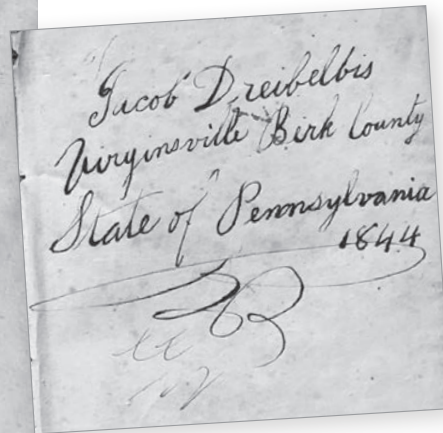 Jacob Dreibelbis
Virginsville Birk County
State of Pennsylvania
1844